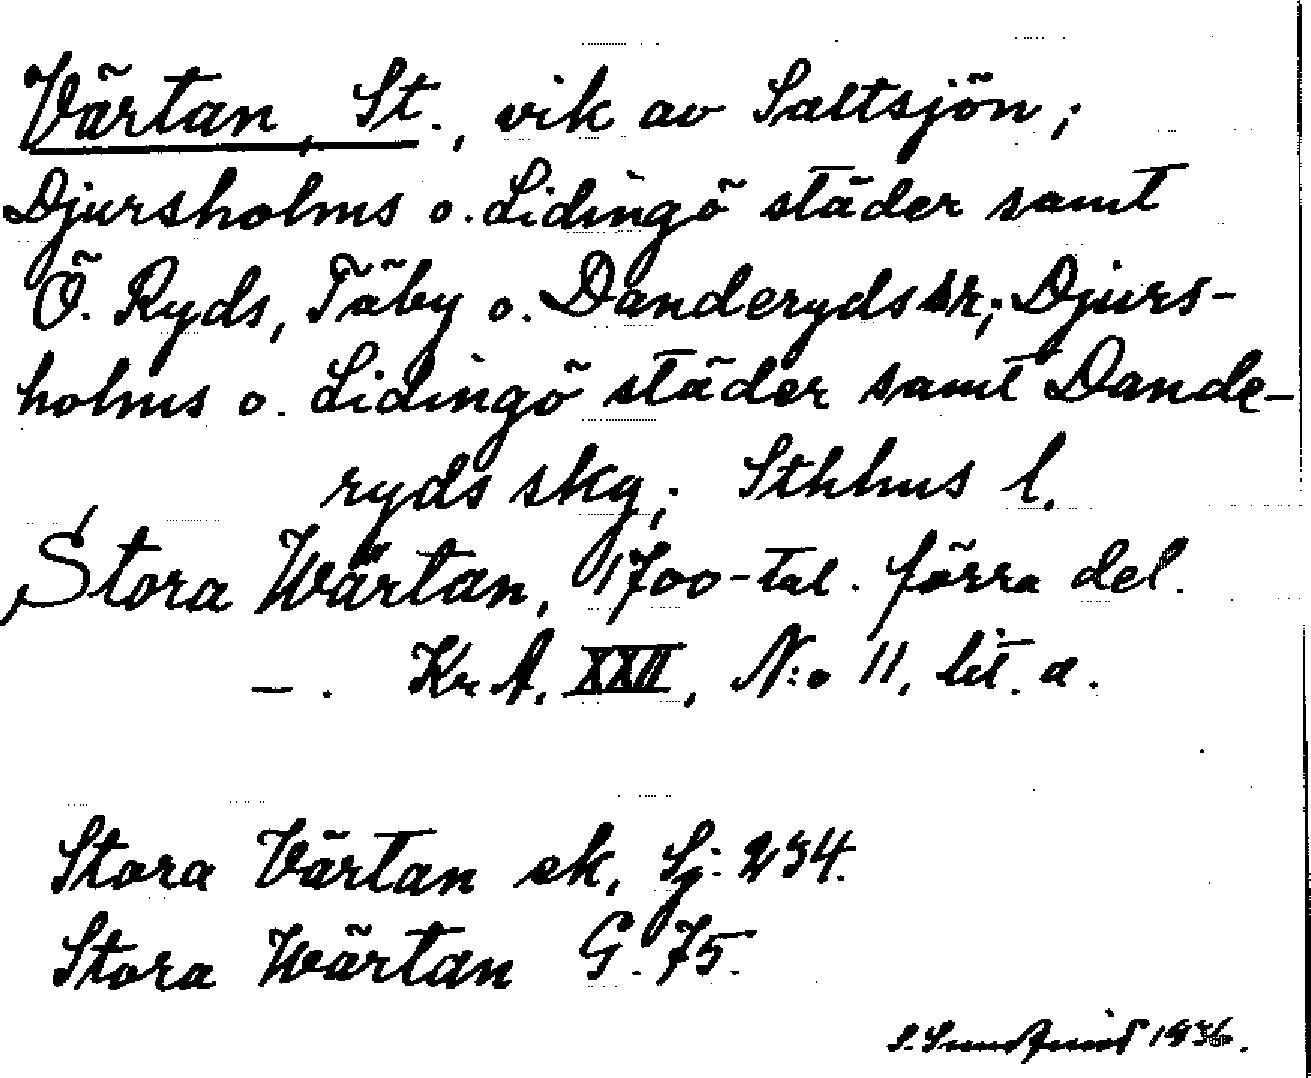 Värtan, St., vik av Saltsjön;
Djursholms o. Lidingö städer samt
Ö. Ryds, Täby o. Danderyds sk; Djurs-
holms o. Lidingö städer samt Dande-
ryds skg; Sthlms l.
Stora Wärtan, 1700-tal. förra del.
—. KrA, XXII, N:o 11, lit. a.
Stora Värtan ek, Sj. 234.
Stora Wärtan G. 75.
1936.